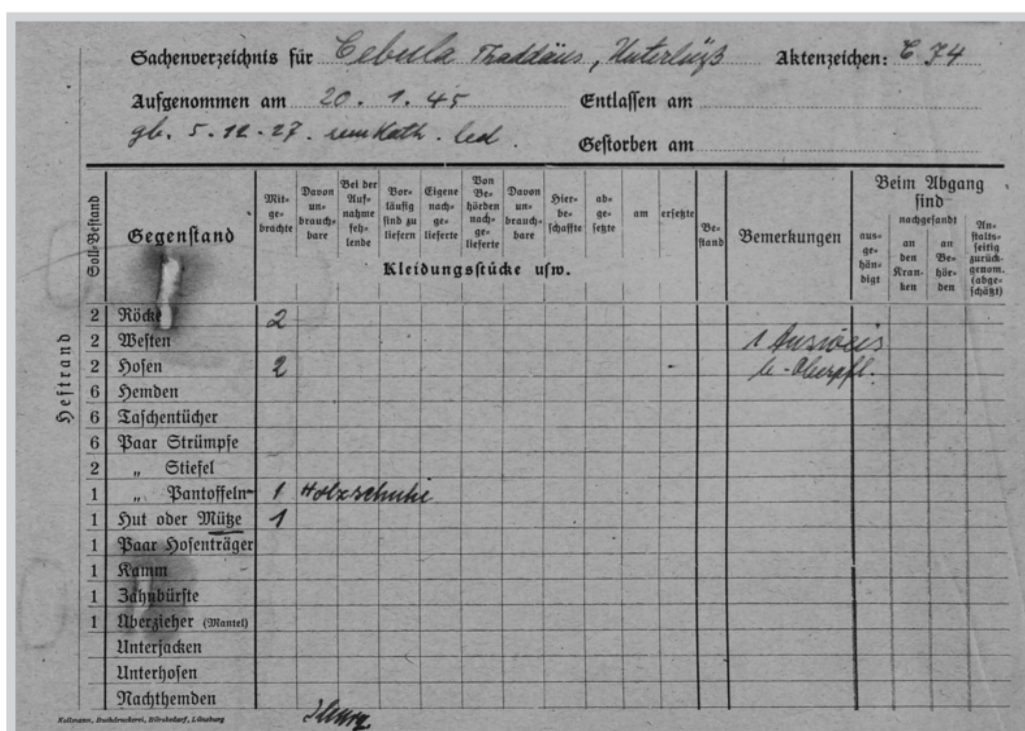 Sachenverzeichnis für Cebula Thaddäus, Unterlüß Aktenzeichen: C 74
Aufgenommen am 20. 1. 45 Entlassen am
gb. 5.12.27. röm Kath. led. Gestorben am
Soll-Bestand
Gegenstand
Mit-
ge-
brachte
Davon
un-
brauch-
bare
Bei der
Auf-
nahme
feh-
lende
Vor-
läufig
sind zu
liefern
Eigene
nach-
ge-
lieferte
Von
Be-
hörden
nach-
ge-
lieferte
Davon
un-
brauch-
bare
Hier-
be-
schaffte
ab-
ge-
setzte
am
ersetzte
Be-
stand
Bemerkungen
Beim Abgang
sind
aus-
ge-
hän-
digt
nachgesandt
an
den
Kran-
ken
an
Be-
hör-
den
An-
stalts-
seitig
zurück-
genom.
(abge-
schätzt)
Kleidungsstücke usw.
Heftrand
2 Röcke 2
2 Westen 1 Ausweis
2 Hosen 2 b. Oberpfl.
6 Hemden
6 Taschentücher
6 Paar Strümpfe
2 „ Stiefel
1 „ Pantoffeln 1 Holzschuhe
1 Hut oder Mütze 1
1 Paar Hosenträger
1 Kamm
1 Zahnbürste
1 Überzieher (Mantel)
Unterjacken
Unterhosen
Nachthemden
Buchdruckerei, Lüneburg